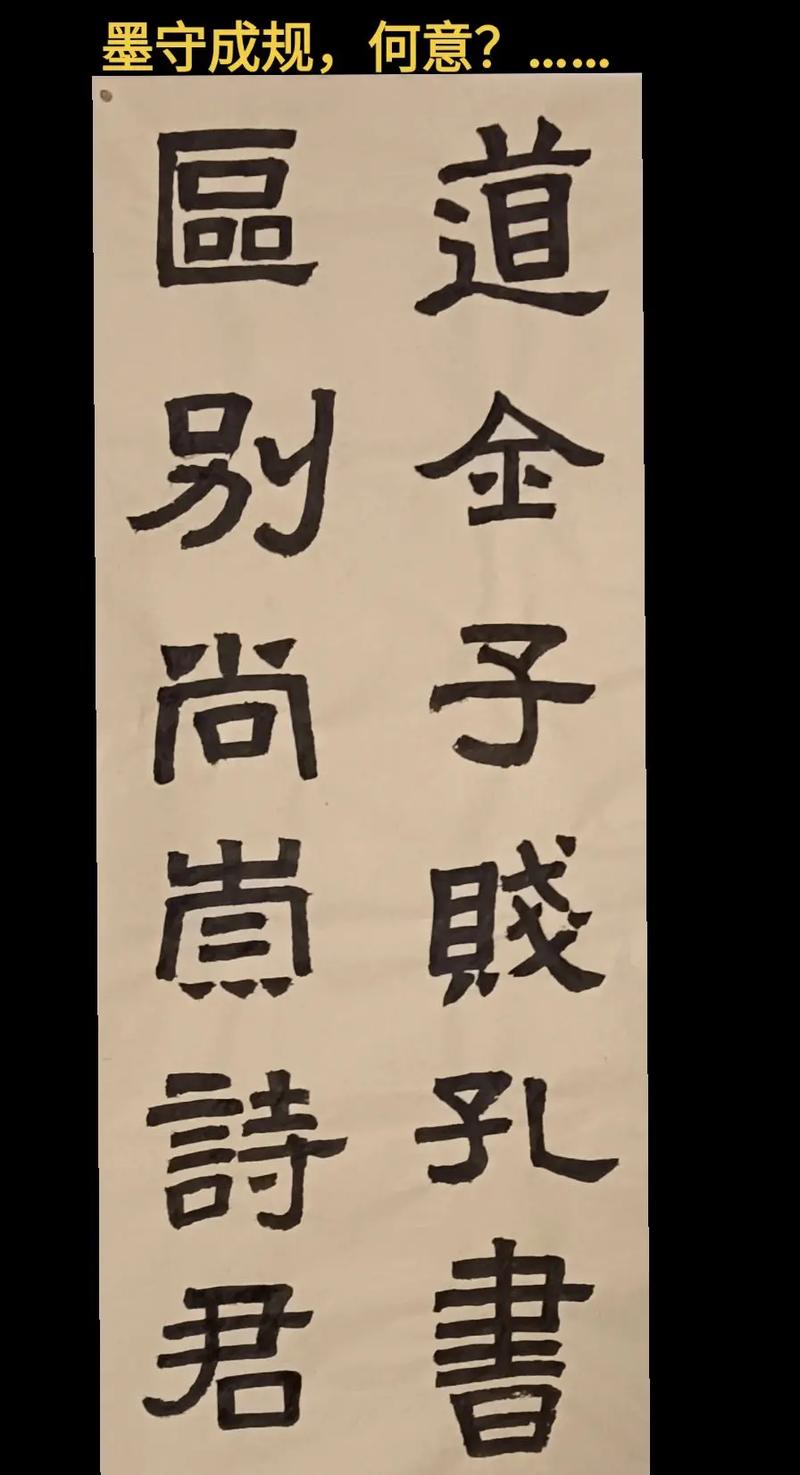 墨守成规，何意？……
道金子賤孔書
區別尚崇詩君